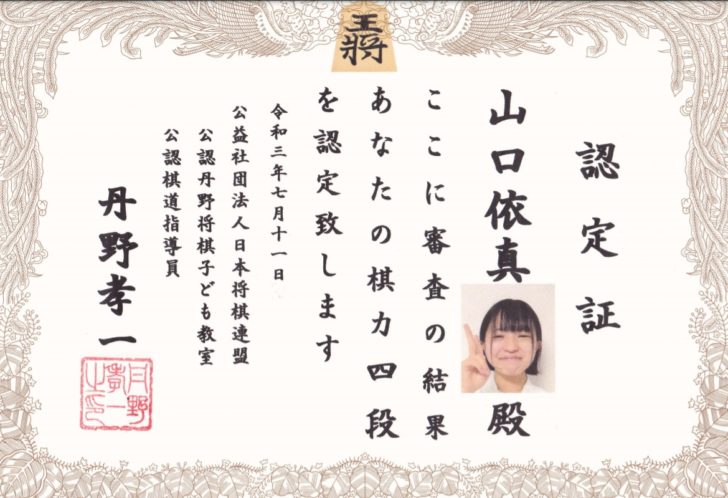 王將
認定証
山口依真 殿
ここに審査の結果
あなたの棋力四段
を認定致します
令和三年七月十一日
公益社団法人日本将棋連盟
公認丹野将棋子ども教室
公認棋道指導員
丹野孝一
丹野
孝一
之印